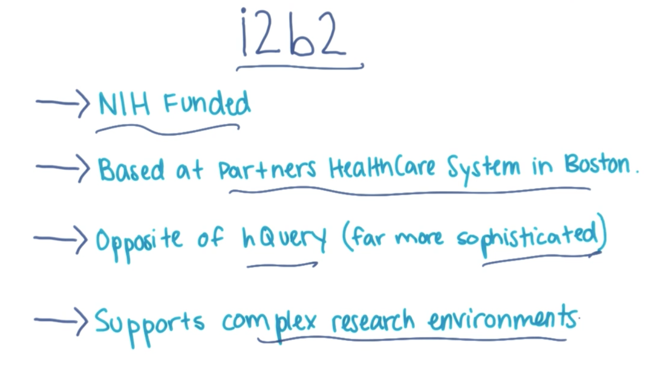 i2b2
→ NIH Funded
→ Based at Partners HealthCare System in Boston.
→ Opposite of hQuery (far more sophisticated)
→ Supports complex research environments.